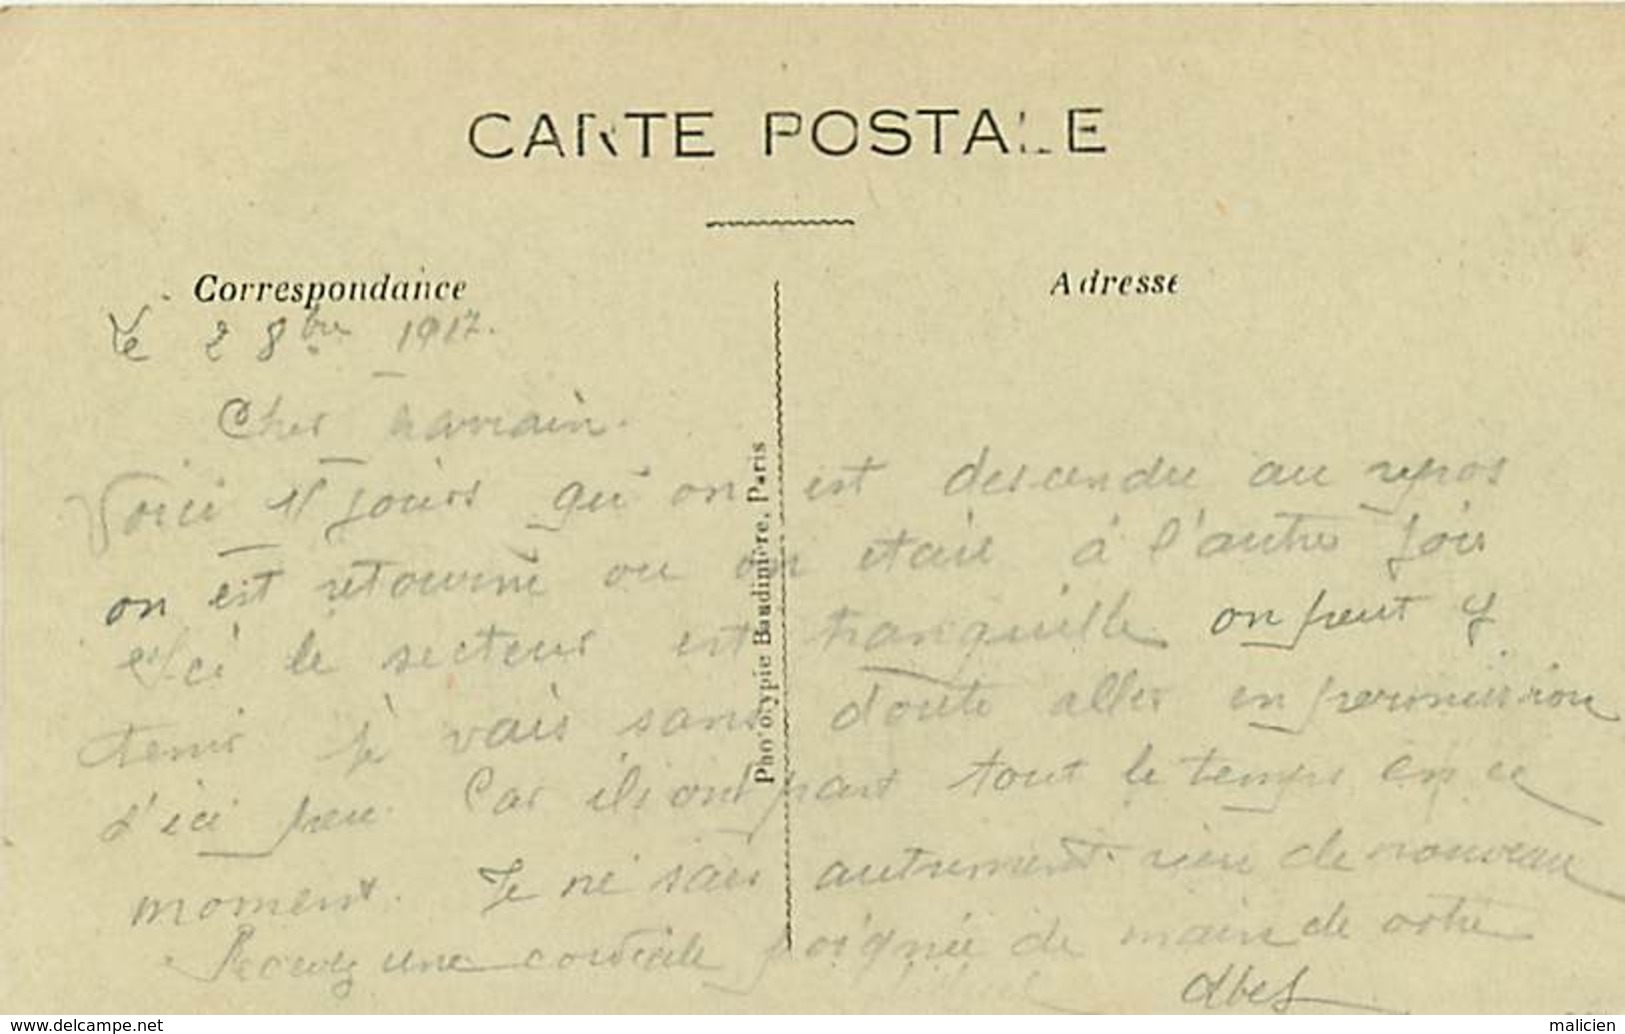 CARTE POSTALE
Correspondance
Adresse
Le 2 8bre 1917.
Cher Parrain.
Voici 15 jours qu'on est descendu au repos
on est retourné ou on etais à l'autre fois
Ici le secteur est tranquille on peut y
tenir je vais sans doute aller en permission
d'ici peu. Car ils ont part tout le temps en ce
moment. Je ne sais autrement rien de nouveau
Recevez une cordiale poignée de main de votre
Phototypie Baudinière, Paris
delcampe.net
malicien